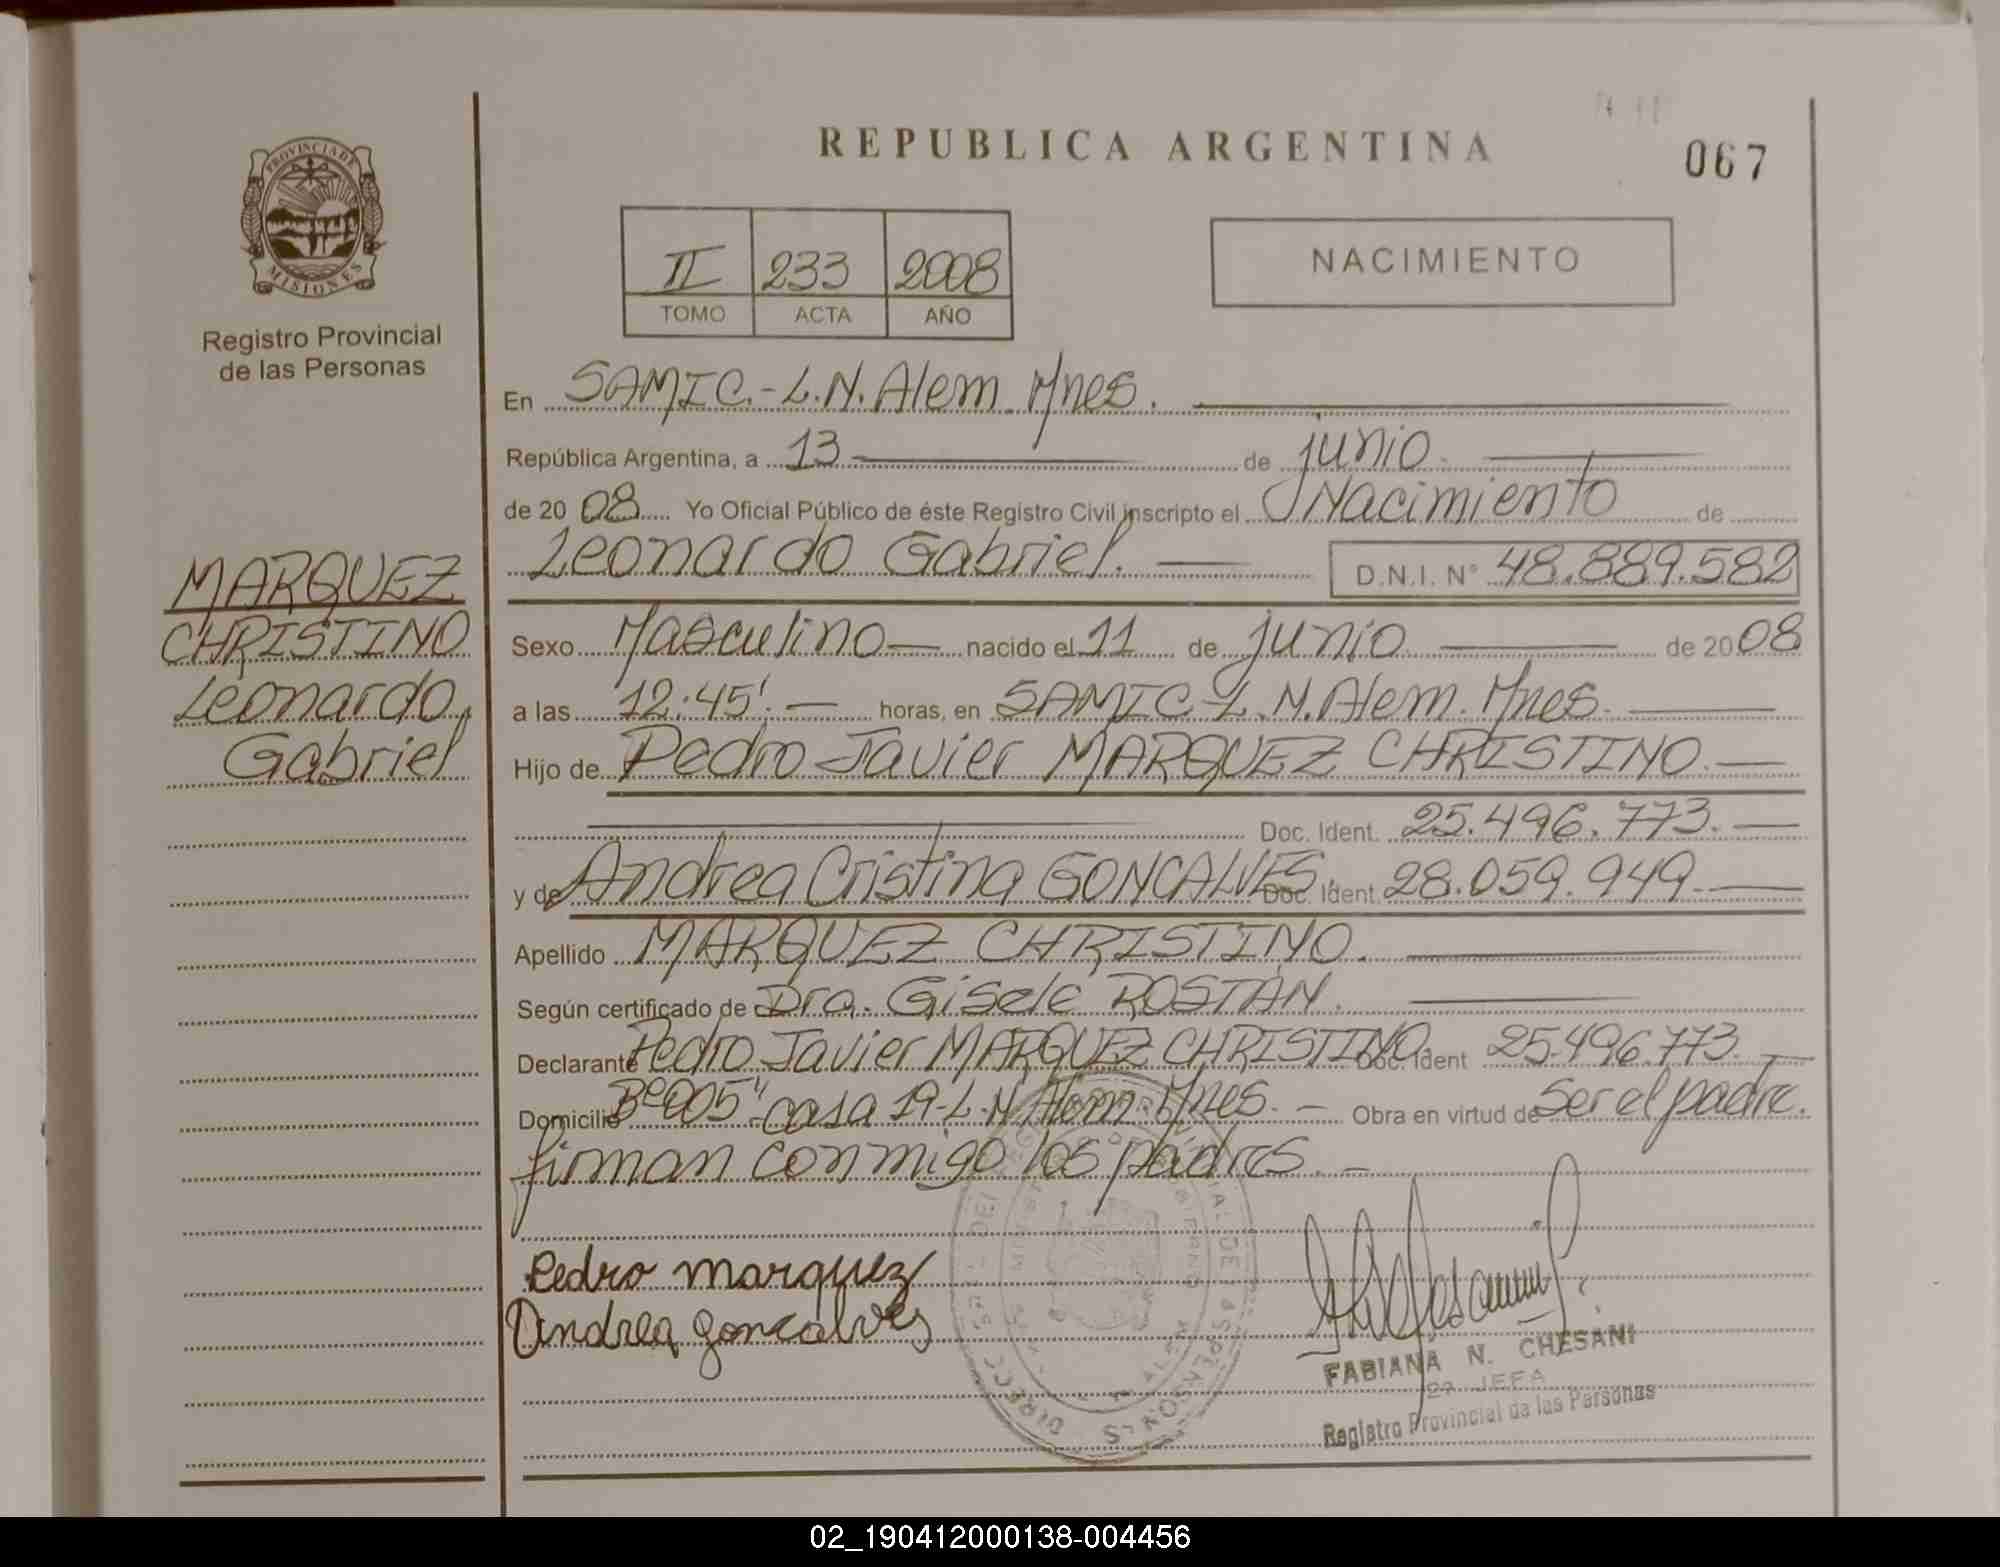 REPUBLICA ARGENTINA
067
PROVINCIA DE MISIONES
Registro Provincial
de las Personas
II 233 2008
TOMO ACTA AÑO
NACIMIENTO
En SAMIC.-L.N.Alem.Mnes.
República Argentina, a 13 de junio.
de 2008 Yo Oficial Público de éste Registro Civil inscripto el Nacimiento de
Leonardo Gabriel. D.N.I. N° 48.889.582
MARQUEZ
CHRISTINO
Leonardo
Gabriel
Sexo Masculino nacido el 11 de junio de 2008
a las 12:45'. horas, en SAMIC-L.N.Alem.Mnes.
Hijo de Pedro Javier MARQUEZ CHRISTINO.
Doc. Ident. 25.496.773.
y de Andrea Cristina GONCALVES. Doc. Ident. 28.059.949.
Apellido MARQUEZ CHRISTINO.
Según certificado de Dra. Gisele ROSTÁN.
Declarante Pedro Javier MARQUEZ CHRISTINO. Doc. Ident 25.496.773.
Domicilio casa 19-L.N.Alem.Mnes. Obra en virtud de Ser el padre.
firman conmigo los padres.
Pedro marquez
Andrea goncalves
FABIANA N. CHESANI
2ª JEFA
Registro Provincial de las Personas
02_190412000138-004456